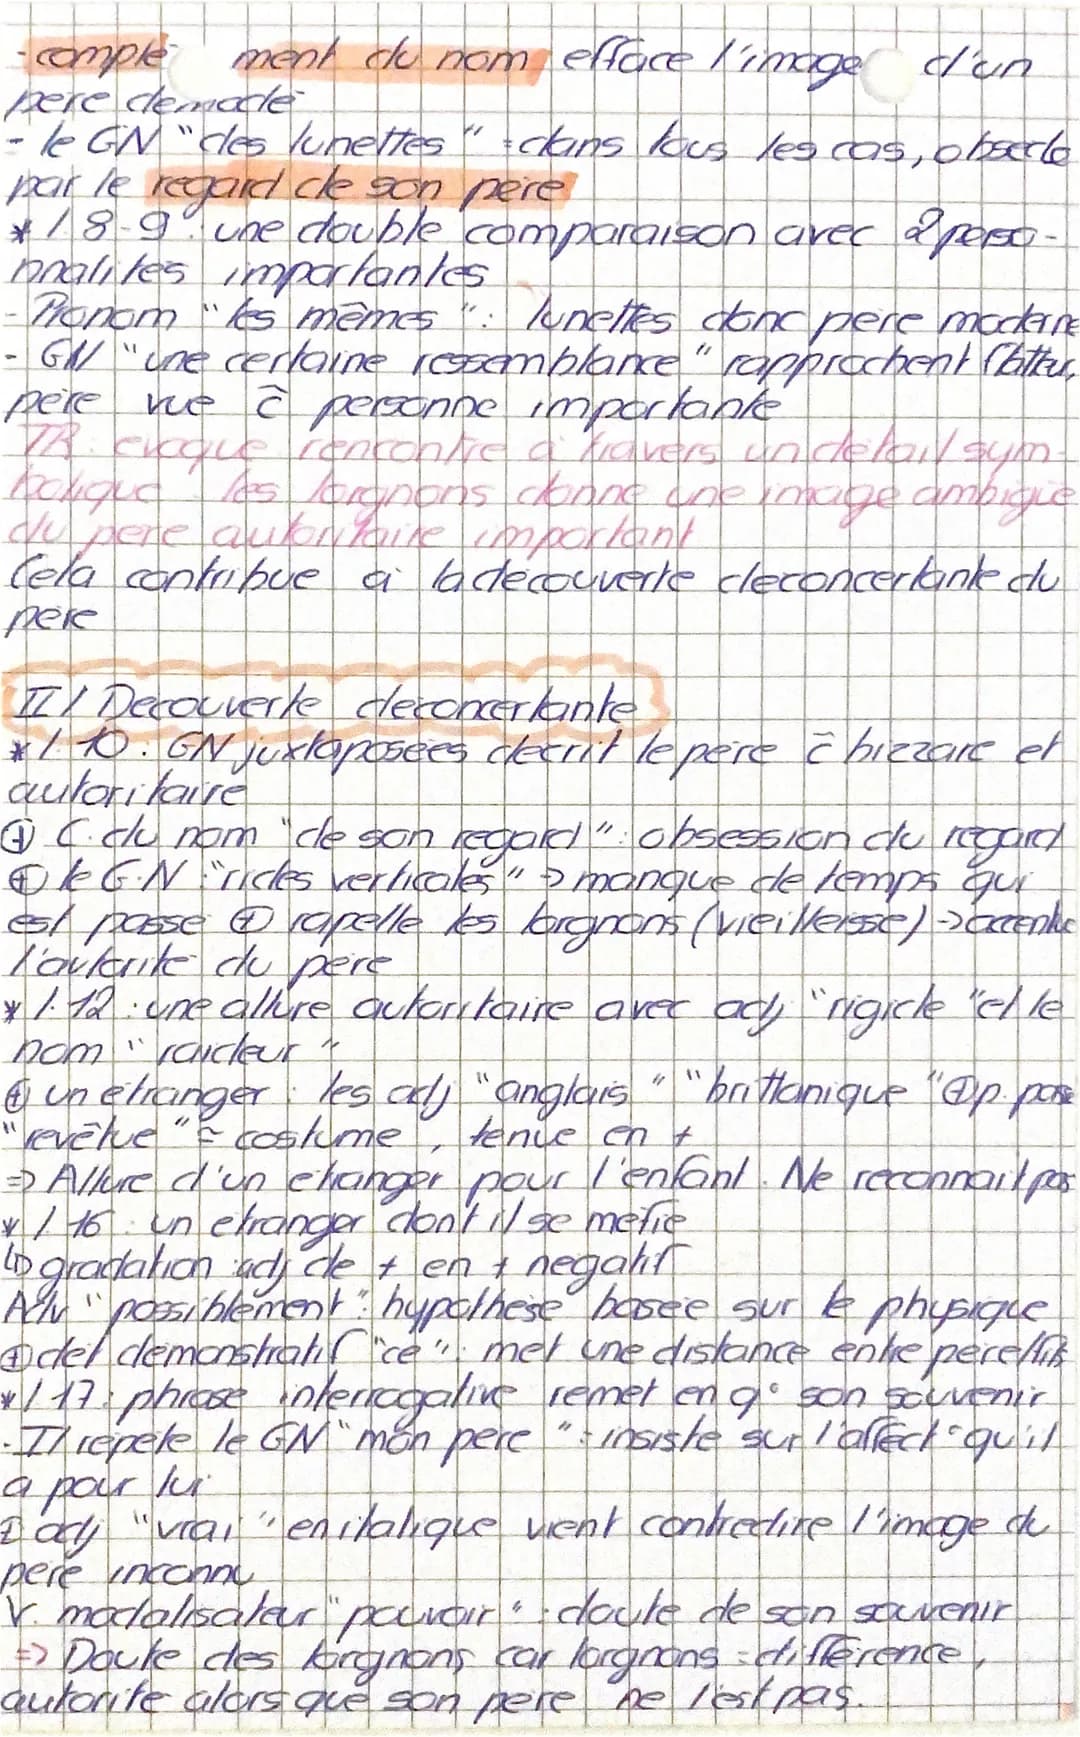 - complé ment du nom efface l'image d'un
père démodé
- le GN "des lunettes" = dans tous les cas, obsédé
par le regard de son père
* l.8-9 : une double comparaison avec 2 perso-
nnalités importantes
- Pronom "les mêmes" : lunettes donc père moderne
- GN "une certaine ressemblance" rapprochent flatteur,
père vue c̄ personne importante
TR : évoque rencontre à travers un détail sym-
bolique les lorgnons donne une image ambigüe
du père autoritaire important
Cela contribue à la découverte déconcertante du
père
II/ Découverte déconcertante
* l.10 : GN juxtaposées décrit le père c̄ bizzare et
autoritaire
⊕ C. du nom "de son regard" : obsession du regard
⊕ le G.N "rides verticales" → manque de temps qui
est passé ⊕ rapelle les lorgnons (vieilleisse) → accentue
l'autorité du père
* l.12 : une allure autoritaire avec adj "rigide" et le
nom "raideur"
⊕ un étranger : les adj "anglais" "brittanique" ⊕ p. passé
"revêtue" = costume, tenue en +
=> Allure d'un étranger pour l'enfant. Ne reconnait pas
* l.16 : un étranger dont il se méfie
↳ gradation adj de + en + négatif
Adv "possiblement" : hypothèse basée sur le physique
⊕ det démonstratif "ce" : met une distance entre père/fils
* l.17 : phrase interrogative remet en q° son souvenir
- Il répète le GN "mon père" : insiste sur l'affect° qu'il
a pour lui
⊕ adj "vrai" en italique vient contredire l'image du
père inconnu
V. modalisateur "pouvoir" : doute de son souvenir
=> Doute des lorgnons car lorgnons = différence,
autorité alors que son père ne l'est pas.